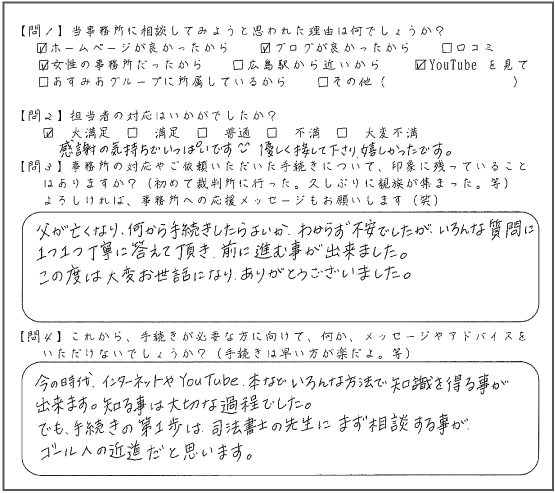 【問1】当事務所に相談してみようと思われた理由は何でしょうか?
☑ホームページが良かったから ☑ブログが良かったから □口コミ
☑女性の事務所だったから □広島駅から近いから ☑YouTube を見て
□あすみあグループに所属しているから □その他( )
【問2】担当者の対応はいかがでしたか?
☑ 大満足 □ 満足 □ 普通 □ 不満 □ 大変不満
感謝の気持ちでいっぱいです 優しく接して下さり、嬉しかったです。
【問3】事務所の対応やご依頼いただいた手続きについて、印象に残っていること
はありますか?(初めて裁判所に行った。久しぶりに親族が集まった。等)
よろしければ、事務所への応援メッセージもお願いします(笑)
父が亡くなり、何から手続きしたらよいか、わからず不安でしたが、いろんな質問に
1つ1つ丁寧に答えて頂き、前に進む事が出来ました。
この度は大変お世話になり、ありがとうございました。
【問4】これから、手続きが必要な方に向けて、何か、メッセージやアドバイスを
いただけないでしょうか?(手続きは早い方が楽だよ。等)
今の時代、インターネットやYouTube、本などいろんな方法で知識を得る事が
出来ます。知る事は大切な過程でした。
でも、手続きの第1歩は、司法書士の先生にまず相談する事が、
ゴールへの近道だと思います。